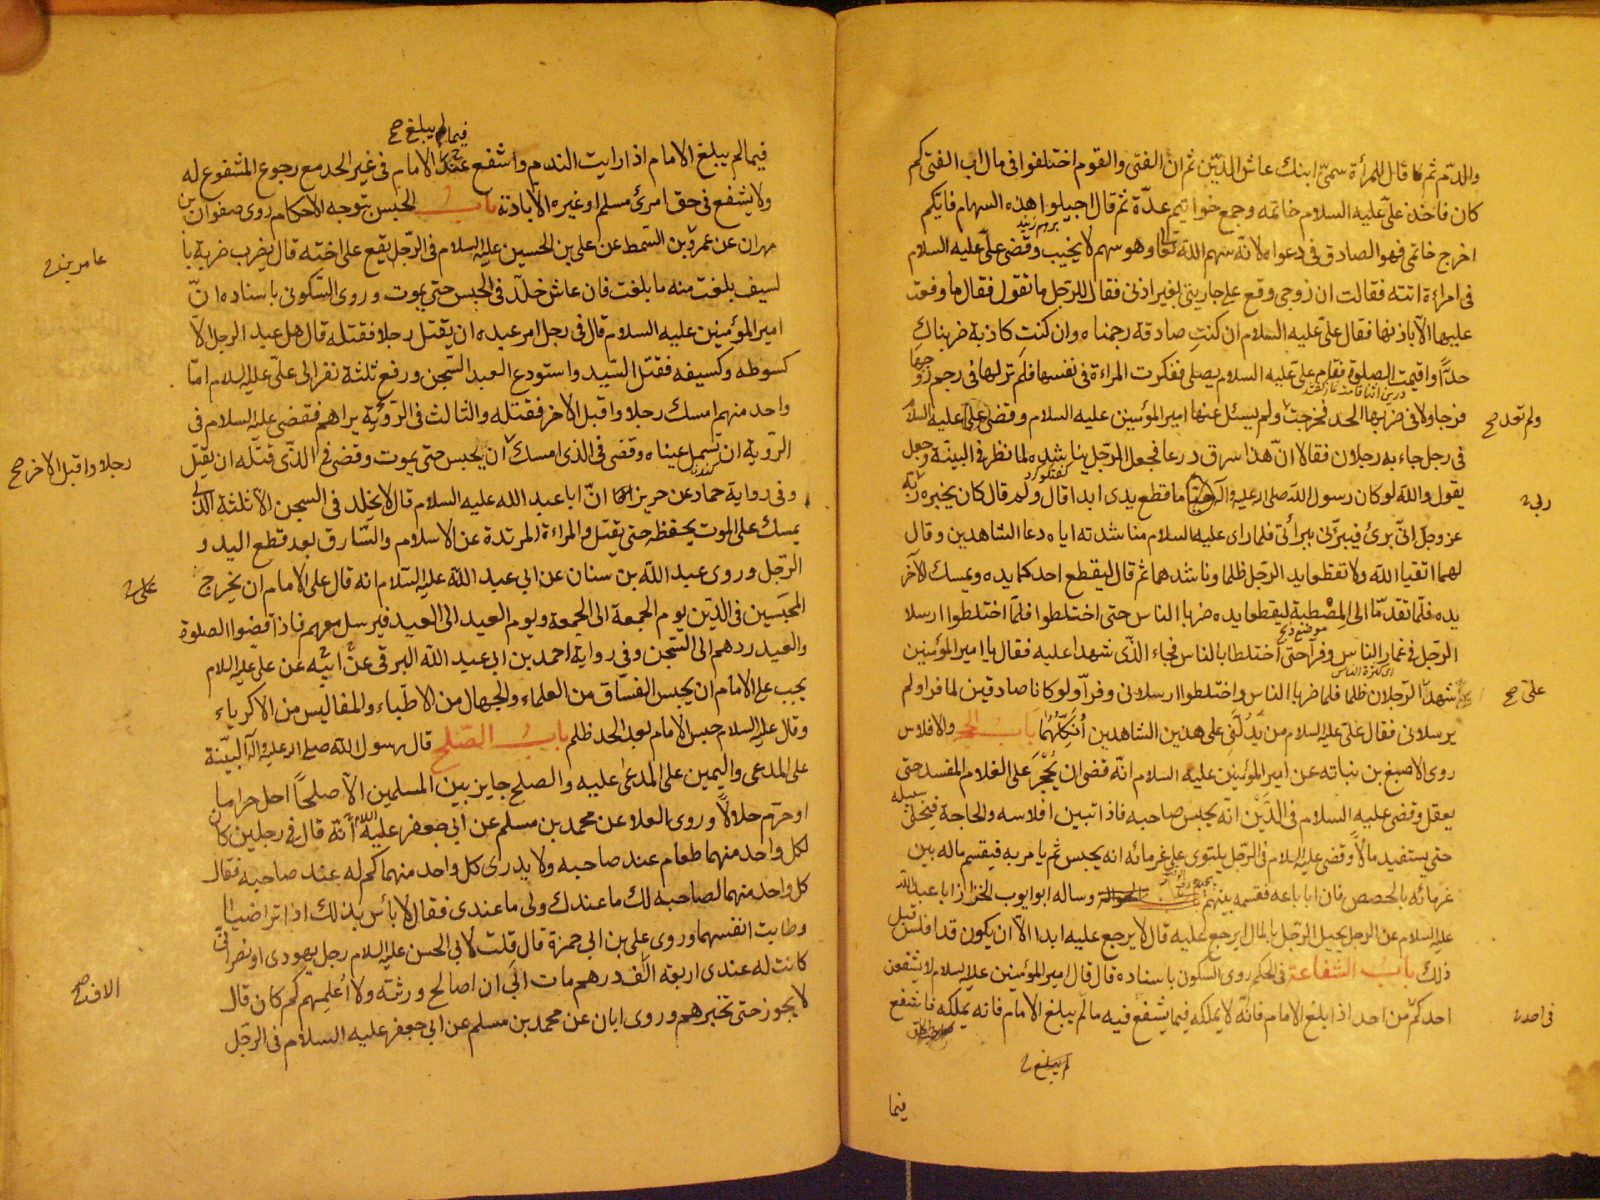 والدّم ثم كما قال للمرأة سمّى ابنك عاش الدّين ثم انّ الفتى والقوم اختلفوا فى مال اب الفتى كم
كان فاخذ علىّ عليه السلام خاتمه وجمع خواتيم عدّة ثم قال اجيلوا هذه السهام فايّكم
اخرج خاتمى فهو الصادق فى دعواه لانّه سهم الله تعالى وهو سهم لا يخيب وقضى علىّ عليه السلام
فى امراءة اتته فقالت ان زوجى وقع على جاريتى بغير اذنى فقال للرّجل ما تقول فقال ما وقعت
عليها الّا باذنها فقال علىّ عليه السلام ان كنتِ صادقة رجمناه وان كنتِ كاذبة ضربناكِ
حدّا واقيمت الصلوة فقام علىّ عليه السلام يصلى ففكرت المراءة فى نفسها فلم تر لها فى رجم زوجها
فرجا ولا فى ضربها الحد فخرجت ولم يسئل عنها امير المؤمنين عليه السلام وقضى علىّ عليه السلام
ولم تعد صح
فى رجل جاء به رجلان فقالا انّ هذا سرق درعا فجعل الرّجل يناشده لما نظر فى البينة وجعل
يقول والله لو كان رسول الله صلى الله عليه وآله حيّا ما قطع يدى ابدا قال ولم قال كان يخبره ربّه
عز وجل انّى برئ فيبرّئنى ببرائتى فلما راى عليه السلام مناشدته اياه دعا الشاهدين وقال
لهما اتقيا الله ولا تقطعا يد الرّجل ظلما وناشدهما ثم قال ليقطع احدكما يده ويمسك الآخر
يده فلمّا تقدّما الى المصطبة ليقطعا يده ضربا الناس حتى اختلطوا فلمّا اختلطوا ارسلا
الرّجل فى غمار الناس وفرّا حتى اختلطا بالناس فجاء الذّى شهدا عليه فقال يا امير المؤمنين
شهد الرّجلان ظلما فلما ضربا الناس واختلطوا ارسلانى وفرّا ولو كانا صادقين لما فرا ولم
علىّ صح
يرسلانى فقال علىّ عليه السلام من يدلّنى على هذين الشاهدين أنكلهما باب الحجر والافلاس
روى الاصبغ بن نباته عن امير المؤمنين عليه السلام انّه قضى ان يُحْجَر على الغلام المفسد حتى
يعقل وقضى عليه السلام فى الدَّيْن انّه يحبس صاحبه فاذا تبين افلاسه والحاجة فيخلى سبيله
حتى يستفيد مالا وقضى عليه السلام فى الرّجل يلتوى على غرمائه انه يحبس ثم يامر به فيقسم ماله بين
غرمائه بالحصص فان ابا باعه فقسمه بينهم وساله ابو ايوب الخزاز ابا عبد الله
عليه السلام عن الرجل يحيل الرّجل بالمال ايرجع عليه قال لا يرجع عليه ابدا الّا ان يكون قد افلس قبل
ذلك باب الشفاعة فى الحكم روى السكونى باسناده قال قال امير المؤمنين عليه السلام لا يشفعن
احدكم من احد اذا بلغ الامام فانّه لا يملكه فيما يشفع فيه ما لم يبلغ الامام فانه يملكه فاشفع
فى احد
لم يبلغ
فيما
فيما لم يبلغ صح
فيما لم يبلغ الامام اذا رايت الندم واشفع عند الامام فى غير الحد مع رجوع المشفوع له
ولا يشفع فى حق امرئ مسلم او غيره الّا باذنه باب الحبس بتوجه الاحكام روى صفوان بن
مهران عن عمرو بن السّمط عن على بن الحسين عليه السلام فى الرّجل يقع على اخته قال يضرب ضربة با
عامر بن
لسيف بلغت منه ما بلغت فان عاش خلّد فى الحبس حتى يموت وروى السّكونى باسناده انّ
امير المؤمنين عليه السلام قال فى رجل امر عبده ان يقتل رجلا فقتله قال هل عبد الرجل الّا
كسوطه وكسيفه فقتل السّيد واستودع العبد السّجن ورفع ثلثة نفر الى علىّ عليه السلام امّا
واحد منهم امسك رجلا واقبل الآخر فقتله والثالث فى الرّؤية يراهم فقضى عليه السلام فى
رجلا واقبل الاخر صح
الرّوية ان تسمل عيناه وقضى فى الذى امسك ان يحبس حتى يموت وقضى فى الذّى قتله ان يقتل
وفى رواية حماد عن حريز انّ ابا عبد الله عليه السلام قال لا يخلد فى السجن الّا ثلثة الذّى
يمسك على الموت يحفظه حتى يقتل والمراءة المرتدة عن الاسلام والسّارق بعد قطع اليد و
الرّجل وروى عبد الله بن سنان عن ابى عبد الله عليه السّلام انه قال على الامام ان يخرج
على
المحبّسين فى الدّين يوم الجمعة الى الجمعة ويوم العيد الى العيد فيرسل معهم فاذا قضوا الصلوة
والعيد ردهم الى السّجن وفى رواية احمد بن ابى عبد الله البرقى عن ابيه عن على عليه السلام
يجب على الامام ان يحبس الفسّاق من العلماء والجهال من الاطبّاء والمفاليس من الاكرياء
وقال عليه السلام حبس الامام بعد الحد ظلم باب الصّلح قال رسول الله صلى الله عليه وآله البيّنة
على المدعى واليمين على المدعى عليه والصلح جايز بين المسلمين الّا صلحًا احل حراما
او حرّم حلالاً وروى العلا عن محمد بن مسلم عن ابى جعفر عليه السلام أنّه قال فى رجلين كان
لكل واحد منهما طعام عند صاحبه ولا يدرى كل واحد منهما كم له عند صاحبه فقال
كل واحد منهما لصاحبه لك ما عندك ولى ما عندى فقال لا بأس بذلك اذا تراضيا
وطابت انفسهما وروى على بن ابى حمزة قال قلت لابى الحسن عليه السلام رجل يهودى او نصرانىّ
كانت له عندى اربعة الف درهم مات الى ان اصالح ورثته ولا أعلمهم كم كان قال
الاف صح
لا يجوز حتى تخبرهم وروى ابان عن محمد بن مسلم عن ابى جعفر عليه السلام فى الرّجل